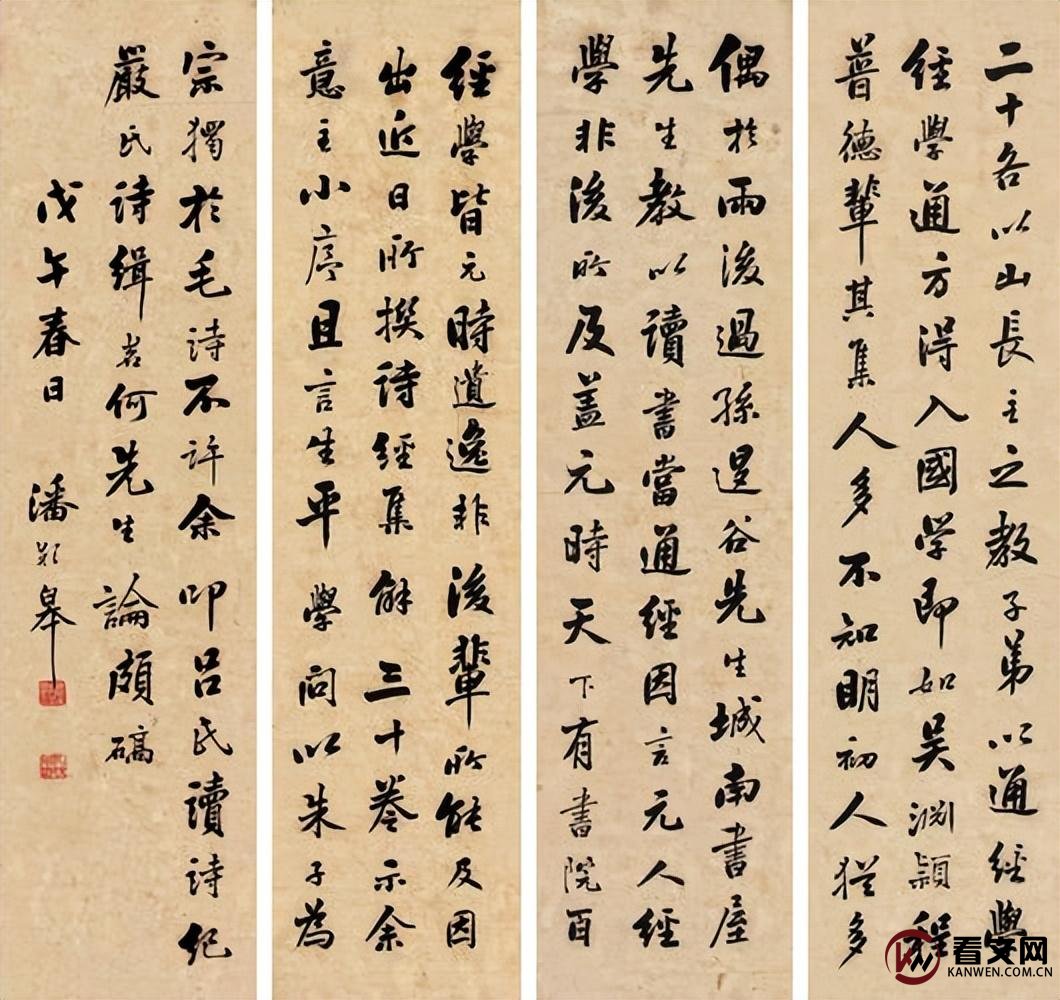 二十各以山長主之教子弟以通經學
經學通方得入國學即如吳淵穎程
普德輩其集人多不知明初人猶多
偶於雨後過孫退谷先生城南書屋
先生教以讀書當通經因言元人經
學非後所及蓋元時天下有書院百
經學皆元時遺逸非後輩所能及因
出近日所撰詩經集解三十卷示余
意主小序且言生平學問以朱子為
宗獨於毛詩不許余叩呂氏讀詩紀
嚴氏詩緝若何先生論頗確
戊午春日 潘齡皋
看文网
KANWEN.COM.CN